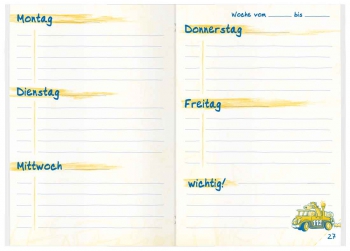 Montag
Dienstag
Mittwoch
Woche vom ______ bis ______
Donnerstag
Freitag
wichtig!
112
27